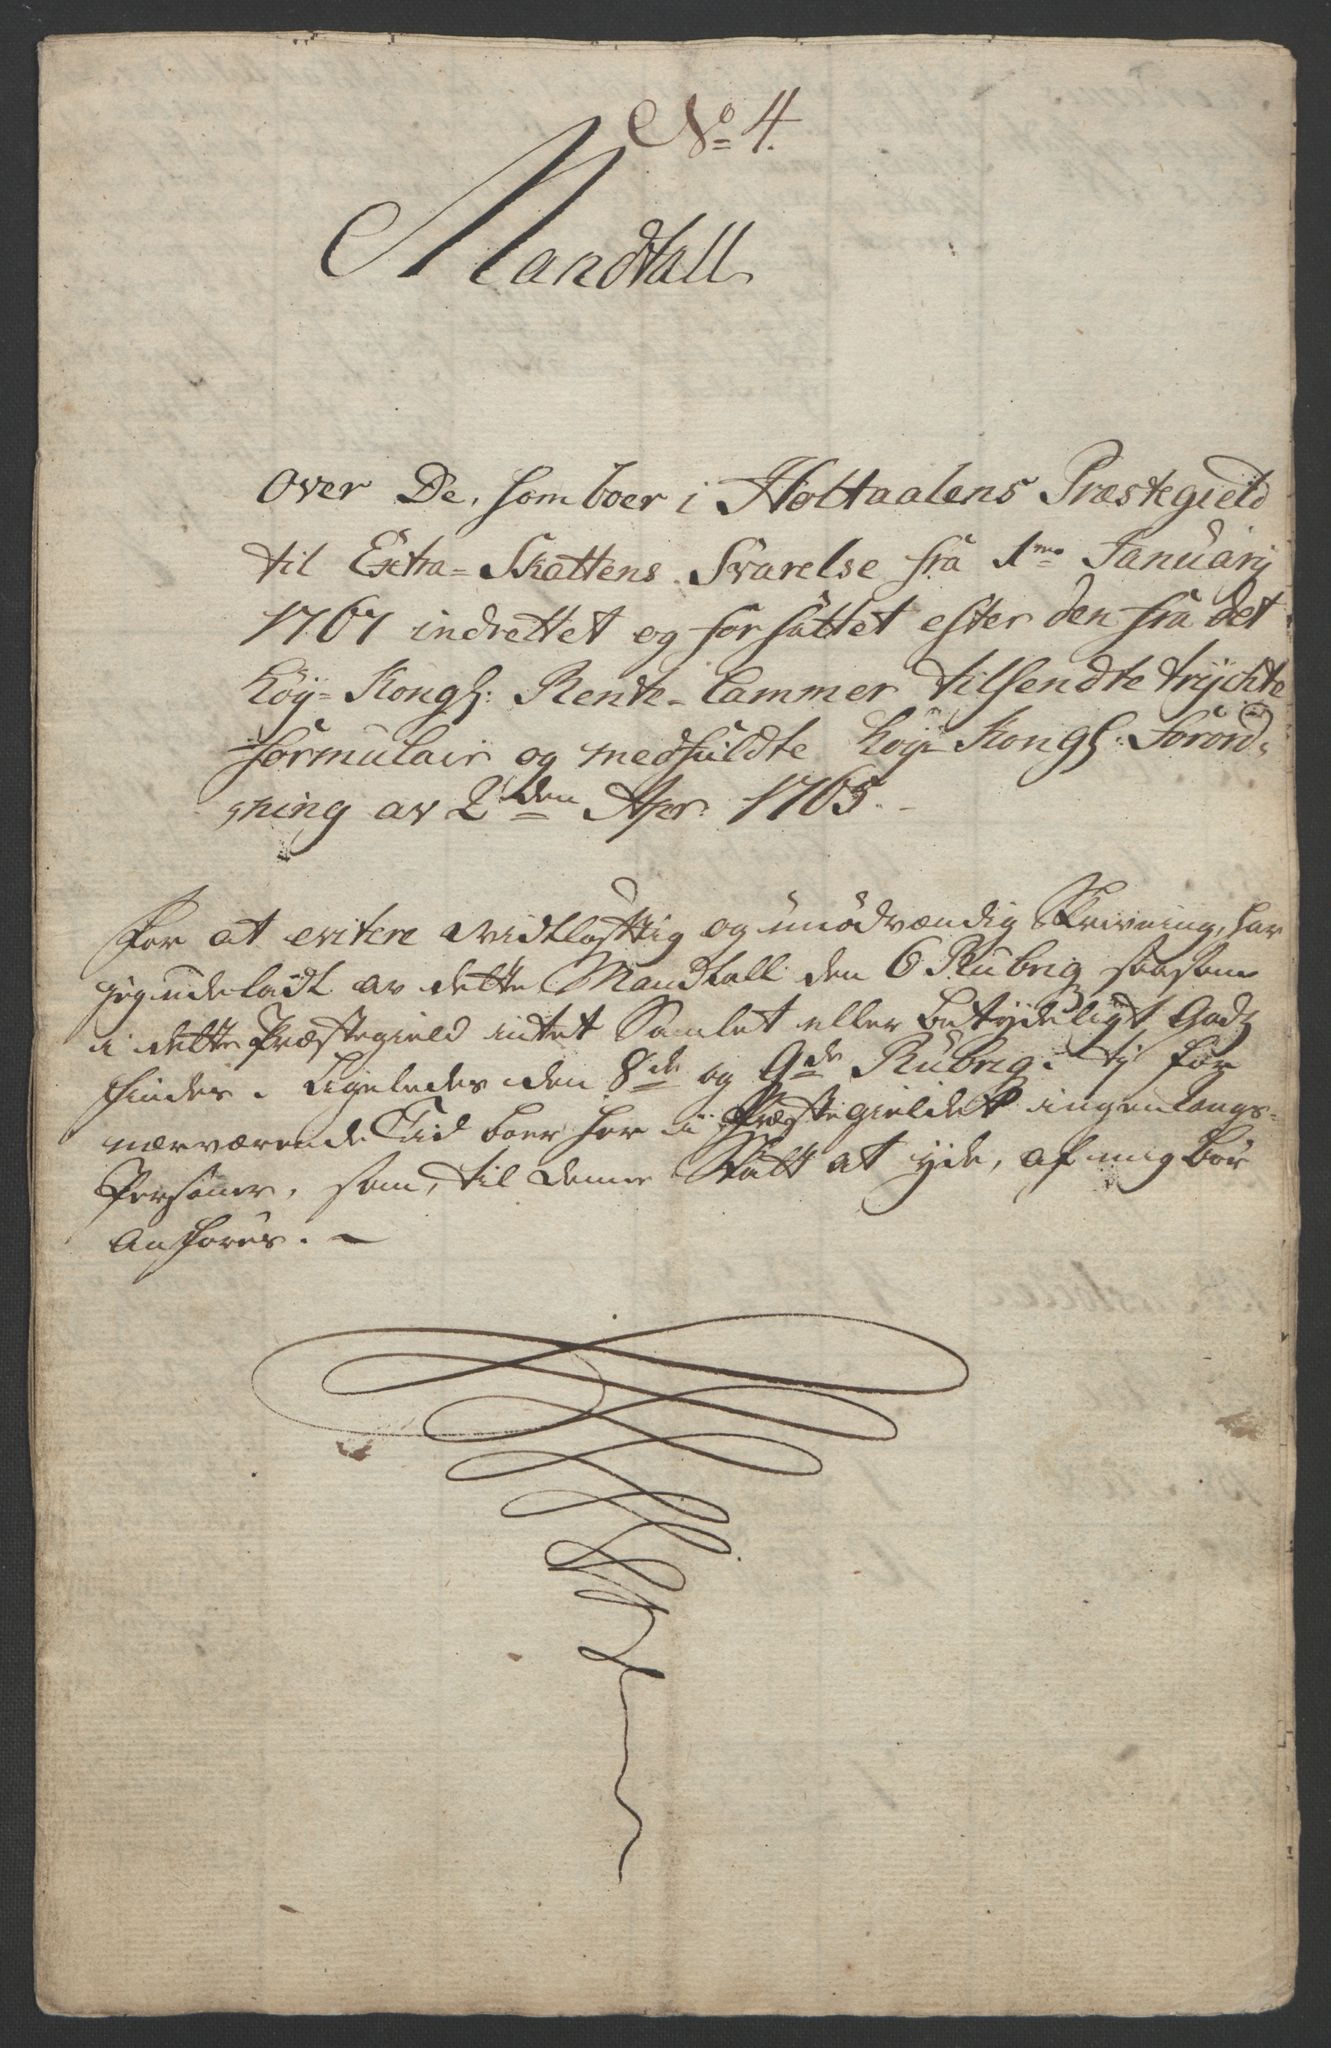 No 4.
Mandtall
Over De, som boer i Holtaalens Præstegield
til Extra-Skattens Svarelse fra 1mo Januarij
1767 indrettet og forfattet efter den fra det
höy-Kongl: Rente-Cammer tilsendte trychte
formulair og medfuldte höy-Kongl: Forord-
ning av 2den Apr: 1765.-
For at evitere vidtløftig og unödvændig Skrivning, har
jeg udeladt av dette Mandtall den 6 Rubrig saasom
i dette Præstegield intet Samlet eller betydeligt Gods
findes. Ligeledes den 8de og 9de Rubrig: tj for
nærværende Tid boer her i Præstegieldet ingen
Personer, som, til denne Skatt at yde, af mig bör
Anföres. -